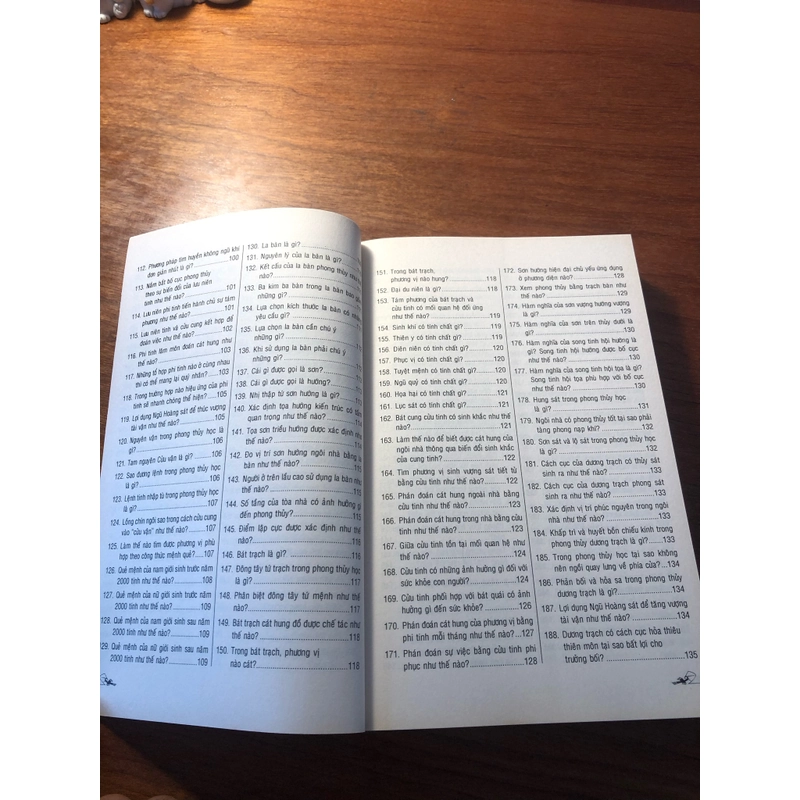 112. Phương pháp tìm huyền không ngũ khí
đơn giản nhất là gì?..........100
113. Nắm bắt bố cục phong thủy
theo sự biến đổi của lưu niên
tinh như thế nào?..........101
114. Lưu niên phi tinh tiến hành chủ sự tám
phương như thế nào?..........101
115. Lưu niên tinh và cửu cung kết hợp để
đoán việc như thế nào?..........102
116. Phi tinh tám môn đoán cát hung như
thế nào?..........103
117. Những tổ hợp phi tinh nào ở cùng nhau
thì có thể mang lại quý nhân?..........103
118. Trong trường hợp nào hiệu ứng của phi
tinh sẽ nhanh chóng thể hiện?..........105
119. Lợi dụng Ngũ Hoàng sát để thúc vượng
tài vận như thế nào?..........105
120. Nguyên vận trong phong thủy học là
gì?..........106
121. Tam nguyên Cửu vận là gì?..........106
122. Sao đương lệnh trong phong thủy học
là gì?..........106
123. Lệnh tinh nhập tù trong phong thủy học
là gì?..........107
124. Lồng chín ngôi sao trong cách cửu cung
vào "cửu vận" như thế nào?..........107
125. Làm thế nào tìm được phương vị phù
hợp theo công thức mệnh quẻ?..........107
126. Quẻ mệnh của nam giới sinh trước năm
2000 tính như thế nào?..........108
127. Quẻ mệnh của nữ giới sinh trước năm
2000 tính như thế nào?..........109
128. Quẻ mệnh của nam giới sinh sau năm
2000 tính như thế nào?..........109
129. Quẻ mệnh của nữ giới sinh sau năm
2000 tính như thế nào?..........109
130. La bàn là gì?
131. Nguyên lý của la bàn là gì?
132. Kết cấu của la bàn phong thủy như
nào?
133. Ba kim ba bàn trong la bàn bao
những gì?
134. Lựa chọn kích thước la bàn có
yêu cầu gì?
135. Lựa chọn la bàn cần chú ý
những gì?
136. Khi sử dụng la bàn phải chú ý
những gì?
137. Cái gì được gọi là sơn?
138. Cái gì được gọi là hướng?
139. Nhị thập tứ sơn hướng là gì?
140. Xác định tọa hướng kiến trúc có tầm
quan trọng như thế nào?
141. Tọa sơn triều hướng được xác định như
thế nào?
142. Đo vị trí sơn hướng ngôi nhà bằng la
bàn như thế nào?
143. Người ở trên lầu cao sử dụng la bàn như
thế nào?
144. Số tầng của tòa nhà có ảnh hưởng gì
đến phong thủy?
145. Điểm lập cực được xác định như thế
nào?
146. Bát trạch là gì?..........116
147. Đông tây tứ trạch trong phong thủy học
là gì?..........117
148. Phân biệt đông tây tứ mệnh như thế
nào?..........117
149. Bát trạch cát hung đồ được chế tác như
thế nào?..........118
150. Trong bát trạch, phương vị
nào cát?..........118
151. Trong bát trạch,
phương vị nào hung?..........118
152. Đại du niên là gì?..........118
153. Tám phương của bát trạch và
cửu tinh có mối quan hệ đối ứng
như thế nào?..........119
154. Sinh khí có tính chất gì?..........119
155. Thiên y có tính chất gì?..........120
156. Diên niên có tính chất gì?..........120
157. Phục vị có tính chất gì?..........120
158. Tuyệt mệnh có tính chất gì?..........120
159. Ngũ quỷ có tính chất gì?..........121
160. Họa hại có tính chất gì?..........121
161. Lục sát có tính chất gì?..........121
162. Bát cung cửu tinh có sinh khắc như thế
nào?..........121
163. Làm thế nào để biết được cát hung của
ngôi nhà thông qua biến đổi sinh khắc
của cung tinh?..........122
164. Tìm phương vị sinh vượng sát tiết từ
bằng cửu tinh như thế nào?..........122
165. Phán đoán cát hung ngoài nhà bằng
cửu tinh như thế nào?..........123
166. Phán đoán cát hung trong nhà bằng cửu
tinh như thế nào?..........123
167. Giữa cửu tinh tồn tại mối quan hệ như
thế nào?..........124
168. Cửu tinh có những ảnh hưởng gì đối với
sức khỏe con người?..........124
169. Cửu tinh phối hợp với bát quái có ảnh
hưởng gì đến sức khỏe?..........126
170. Phán đoán cát hung của phương vị bằng
phi tinh mỗi tháng như thế nào?...127
171. Phán đoán sự việc bằng cửu tinh phi
phục như thế nào?..........128
172. Sơn hướng hiện đại chủ yếu ứng dụng
ở phương diện nào?..........128
173. Xem phong thủy bằng trạch bàn như
thế nào?..........129
174. Hàm nghĩa của sơn vượng hướng vượng
là gì?..........129
175. Hàm nghĩa của sơn trên thủy dưới là
gì?..........130
176. Hàm nghĩa của song tinh hội hướng là
gì? Song tinh hội hướng được bố cục
như thế nào?..........130
177. Hàm nghĩa của song tinh hội tọa là gì?
Song tinh hội tọa phù hợp với bố cục
như thế nào?..........130
178. Hung sát trong phong thủy học
là gì?..........131
179. Ngôi nhà có phong thủy tốt tại sao phải
tầng phong nạp khí?..........132
180. Sơn sát và lộ sát trong phong thủy học
là gì?..........132
181. Cách cục của dương trạch có thủy sát
sinh ra như thế nào?..........133
182. Cách cục của dương trạch phong sát
sinh ra như thế nào?..........133
183. Xác định vị trí phúc nguyên trong ngôi
nhà như thế nào?..........133
184. Khấp trì và huyết bồn chiếu kính trong
phong thủy dương trạch là gì?..........134
185. Trong phong thủy học tại sao không
nên ngồi quay lưng về phía cửa?..134
186. Phản bối và hỏa sa trong phong thủy
dương trạch là gì?..........134
187. Lợi dụng Ngũ Hoàng sát để tăng vượng
tài vận như thế nào?..........134
188. Dương trạch có cách cục hỏa thiêu
thiên môn tại sao bất lợi cho
trưởng bối?..........135